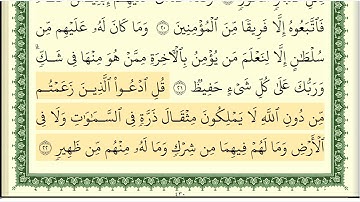 فَٱتَّبَعُوهُ إِلَّا فَرِيقًا مِّنَ ٱلْمُؤْمِنِينَ ٢٠ وَمَا كَانَ لَهُۥ عَلَيْهِم مِّن
سُلْطَٰنٍ إِلَّا لِنَعْلَمَ مَن يُؤْمِنُ بِٱلْءَاخِرَةِ مِمَّنْ هُوَ مِنْهَا فِى شَكٍّۗ
وَرَبُّكَ عَلَىٰ كُلِّ شَىْءٍ حَفِيظٌ ٢١ قُلِ ٱدْعُوا۟ ٱلَّذِينَ زَعَمْتُم
مِّن دُونِ ٱللَّهِ لَا يَمْلِكُونَ مِثْقَالَ ذَرَّةٍ فِى ٱلسَّمَٰوَٰتِ وَلَا فِى
ٱلْأَرْضِ وَمَا لَهُمْ فِيهِمَا مِن شِرْكٍ وَمَا لَهُۥ مِنْهُم مِّن ظَهِيرٍ ٢٢
٤٣٠